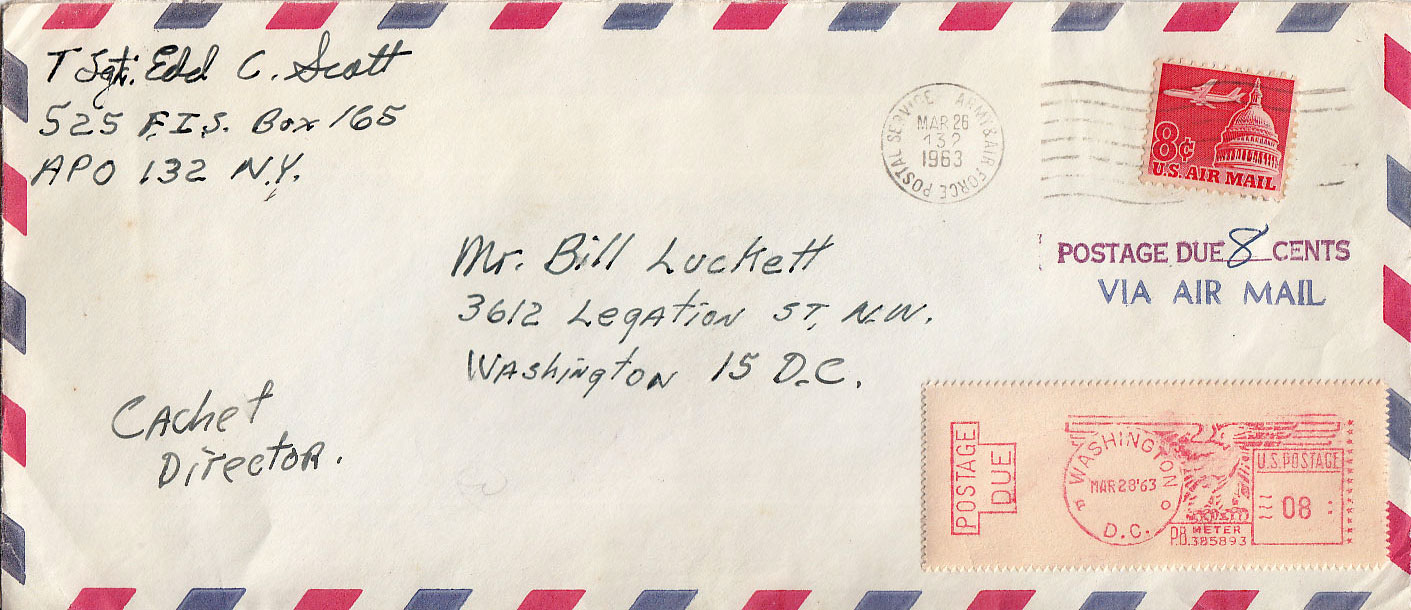 T Sgt. Edd C. Scott
525 F.I.S. Box 165
APO 132 N.Y.
ARMY & AIR FORCE POSTAL SERVICE
MAR 26
132
1963
8¢
U.S. AIR MAIL
POSTAGE DUE 8 CENTS
VIA AIR MAIL
Mr. Bill Luckett
3612 Legation ST, N.W.
Washington 15 D.C.
Cachet
Director.
POSTAGE
DUE
WASHINGTON
MAR 28 '63
D.C.
P O
U.S. POSTAGE
08
METER
P.B. 385893